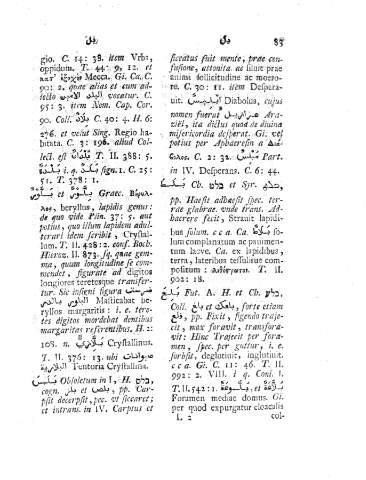 85
gio. C. 14: 38. item Vrbs,
oppidum. T. 44: 9, 12. et
Mecca. Gi. Ca. C.
90: 2. quae alias et cum ad-
iecto البلد الامين vocatur. C.
95: 3. item Nom. Cap. Cor.
90. Coll. بلاد C. 40: 4. H. 6:
276. et velut Sing. Regio ha-
bitata. C. 3: 196. aliud Col-
lect. est بلدان T. II. 388: 5.
i. q. signi. 1. C. 25:
51. T. 378: 1.
et Graec.
beryllus, lapidis genus:
de quo vide Plin. 37: 5. aut
potius, quo illum lapidem adul-
terari idem scribit, Crystal-
lum. T. II. 428: 2. conf. Boch.
Hieroz. II. 873. sq. quae gem-
ma, quum longitudine se com-
mendet, figurate ad digitos
longiores teretesque transfer-
tur. Sic insigni figura
Masticabat be-
ryllos margaritis: i. e. tero-
tes digitos mordebat dentibus
margaritas referentibus. H. 2:
108. n. Cryltallinus.
T. II. 276: 13. ubi
Tentoria Cryltallina.
Obsoletum in I, H.
cogn. بلز et بلص, pp. Car-
psit decerpsit, pec. vt siccaret;
et intrans. in IV. Carptus et
siccatus fuit mente, prae con-
fusione, attonita ac siluit prae
animi sollicitudine ac moero-
re. C. 30: 11. item Despera-
uit. ابليس Diabolus, cujus
nomen fuerat عزازيل Ara-
ziel, ita dictus quod de diuina
misericordia desperat. Gi. vel
potius per Aphaeresin a
C. 2: 32. Part.
in IV. Desperans. C. 6: 44.
Ch. et Syr.
pp. Haesit adhaesit spec. ter-
rae glabrae. vnde trans. Ad-
haerere fecit, Strauit lapidi-
bus solum. c c a Ca. so-
lum complanatum ac pauimen-
tum laeve. Ca. ex lapidibus,
terra, lateribus tessulisue com-
positum: T. II.
902: 18.
Fut. A. H. et Ch.
Coll. et forte etiam
pp. Fixit, figendo traje-
cit, max foravit, transfora-
vit: Hinc Trajecit per fora-
men, spec. per guttur, i. e.
sorbsit, deglutinit, inglutinit.
c c a Gi. C. 11: 46. T. II.
992: 2. VIII. i q. Conj. I.
T. II. 542: 1. et
Foramen mediae domus. Gi.
per quod expurgatur cloacalis
L 2 col-